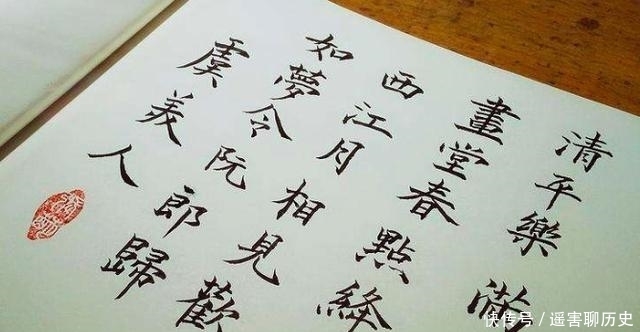 清平樂 滿
畫堂春 點絳
西江月 相見歡
如夢令 阮郎歸
虞美人
快传号／遥害聊历史